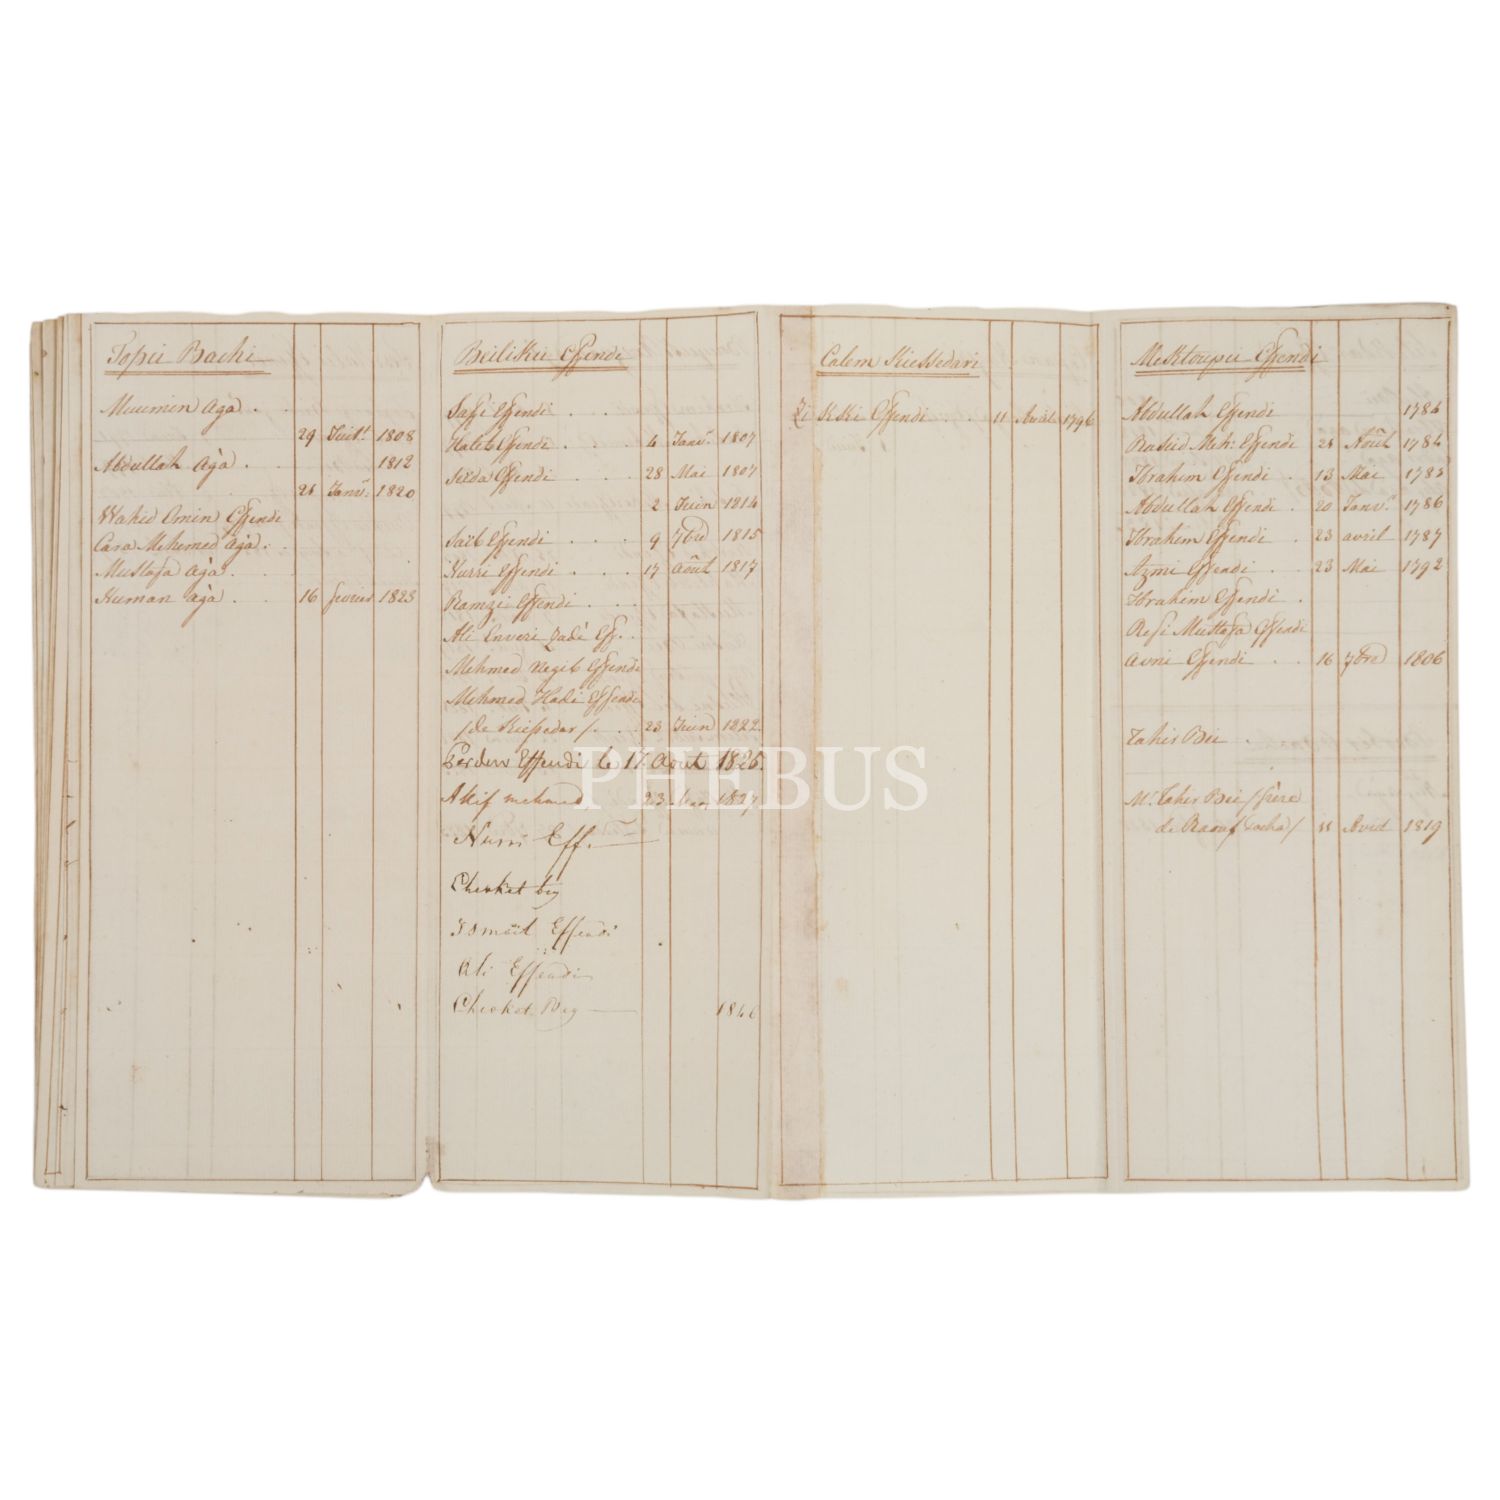 Topci Bachi
Muumin Aga . .
29 Juil.t 1808
Abdullah Aga . 1812
21 Janv.r 1820
Wahid Emin Effendi
Cara Mehemed Aga .
Mustafa Aga .
Numan Aga . . 16 fevrier 1823
Beilikci Effendi
Saffi Effendi . . .
Halet Effendi . . . 4 Janv.r 1807
Seïda Effendi . . . 28 Mai 1807
2 Juin 1814
Saïb Effendi . . . . 9 7bre 1815
Nurri Effendi . . . . 17 Août 1817
Ramzi Effendi . . .
Ali Enveri Zadé Eff. .
Mehmed Negib Effendi
Mehmed Hadi Effendi
/de Kiessedar/ . . . 23 Juin 1822.
Perdew Effendi le 17 Aout 1825.
Akif mehmed 23 1827
Nurri Eff.
Chevket bey
Ismaïl Effendi
Ali Effendi
Chevket Bey 1846
Calem Kiessedari
Effendi . . 11 Avril 1796
Mektoupci Effendi
Abdullah Effendi 1784
Rachid Meh: Effendi 21 Août 1784
Ibrahim Effendi . 13 Mai 1785
Abdullah Effendi . 20 Janv.r 1786
Ibrahim Effendi . 23 avril 1787
Azmi Effendi . . 23 Mai 1792
Ibrahim Effendi .
Refi Mustafa Effendi
Avni Effendi . . . 16 7bre 1806
Tahir Bei . . .
M. Tahir Bei /frère
de Raouf Pacha/ 11 Avril 1819
PHEBUS